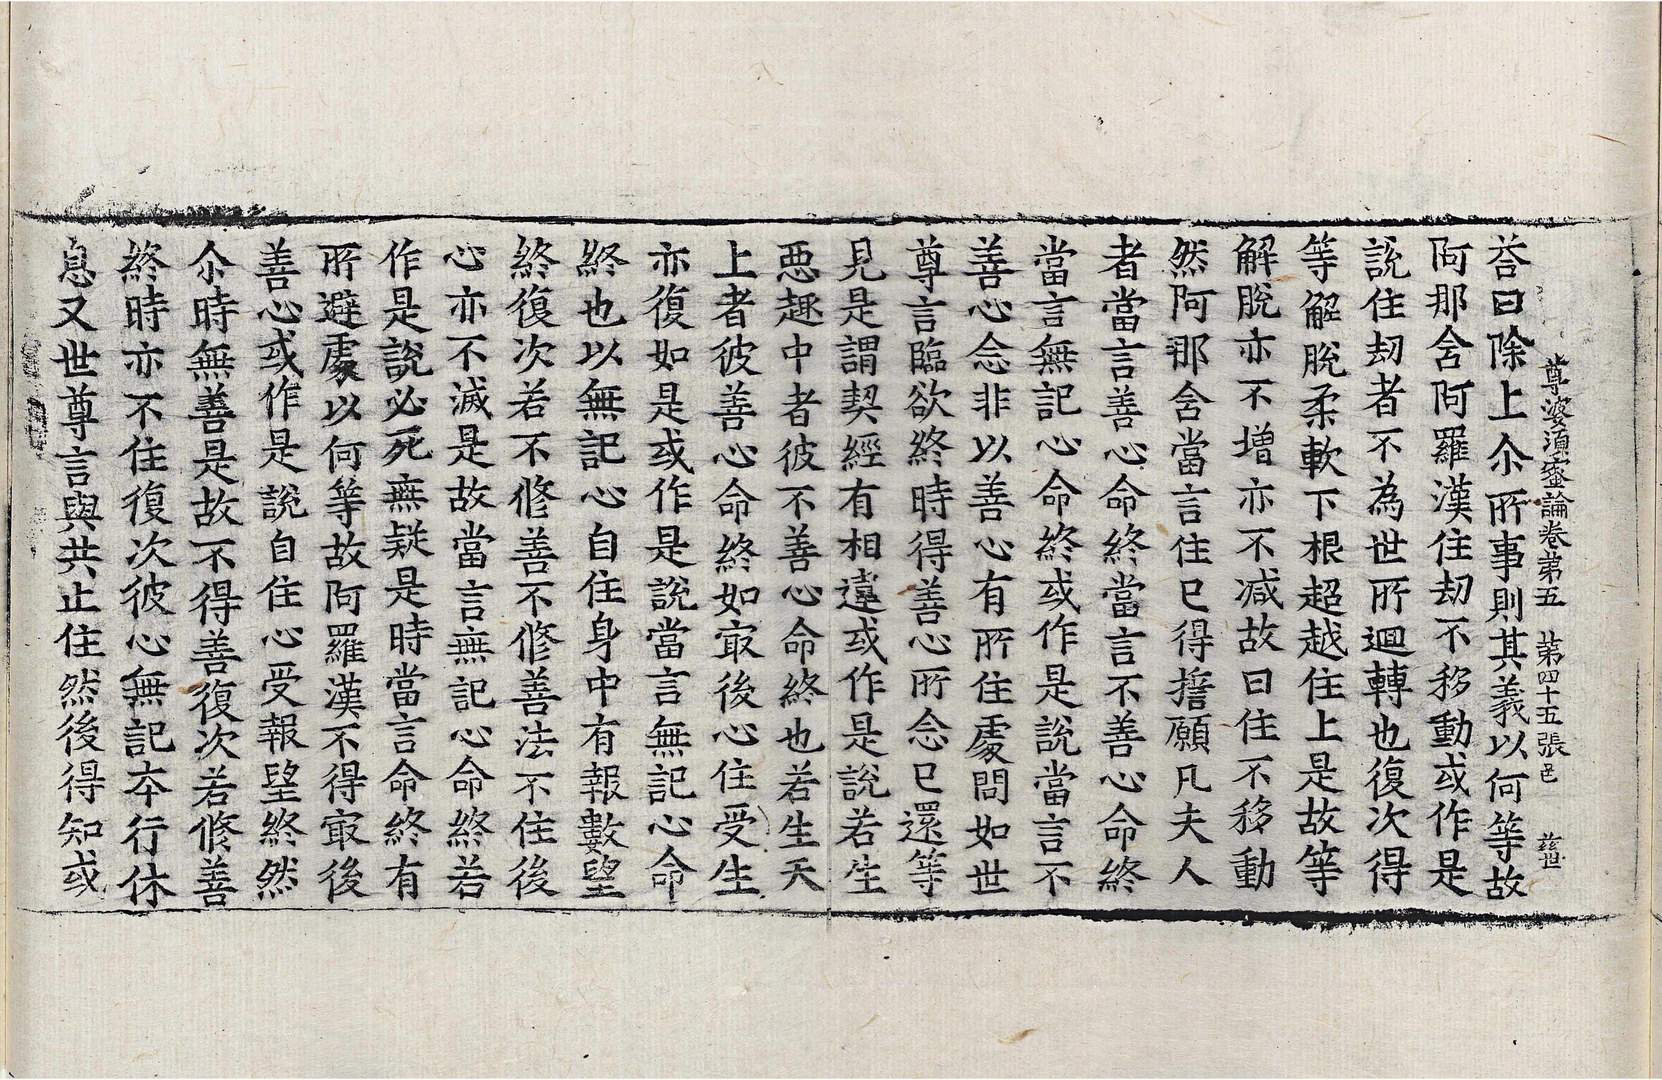 尊婆湏蜜論卷第五　第四十五張　邑
荅曰除上尒所事則其義以何等故
阿那含阿羅漢住劫不移動或作是
說住劫者不為世所迴轉也復次得
等解脫柔軟下根超越住上是故等
解脫亦不增亦不减故曰住不移動
然阿那含當言住已得擔願凡夫人
者當言善心命終當言不善心命終
當言無記心命終或作是說當言不
善心念非以善心有所住處問如世
尊言臨欲終時得善心所念已還等
見是謂契經有相違或作是說若生
惡趣中者彼不善心命終也若生天
上者彼善心命終如㝡後心住受生
亦復如是或作是說當言無記心命
終也以無記心自住身中有報數望
終復次若不修善不修善法不住後
心亦不滅是故當言無記心命終若
作是說必死無疑是時當言命終有
所避處以何等故阿羅漢不得㝡後
善心或作是說自住心受報望終然
尒時無善是故不得善復次若修善
終時亦不住復次彼心無記夲行休
息又世尊言與共止住然後得知或